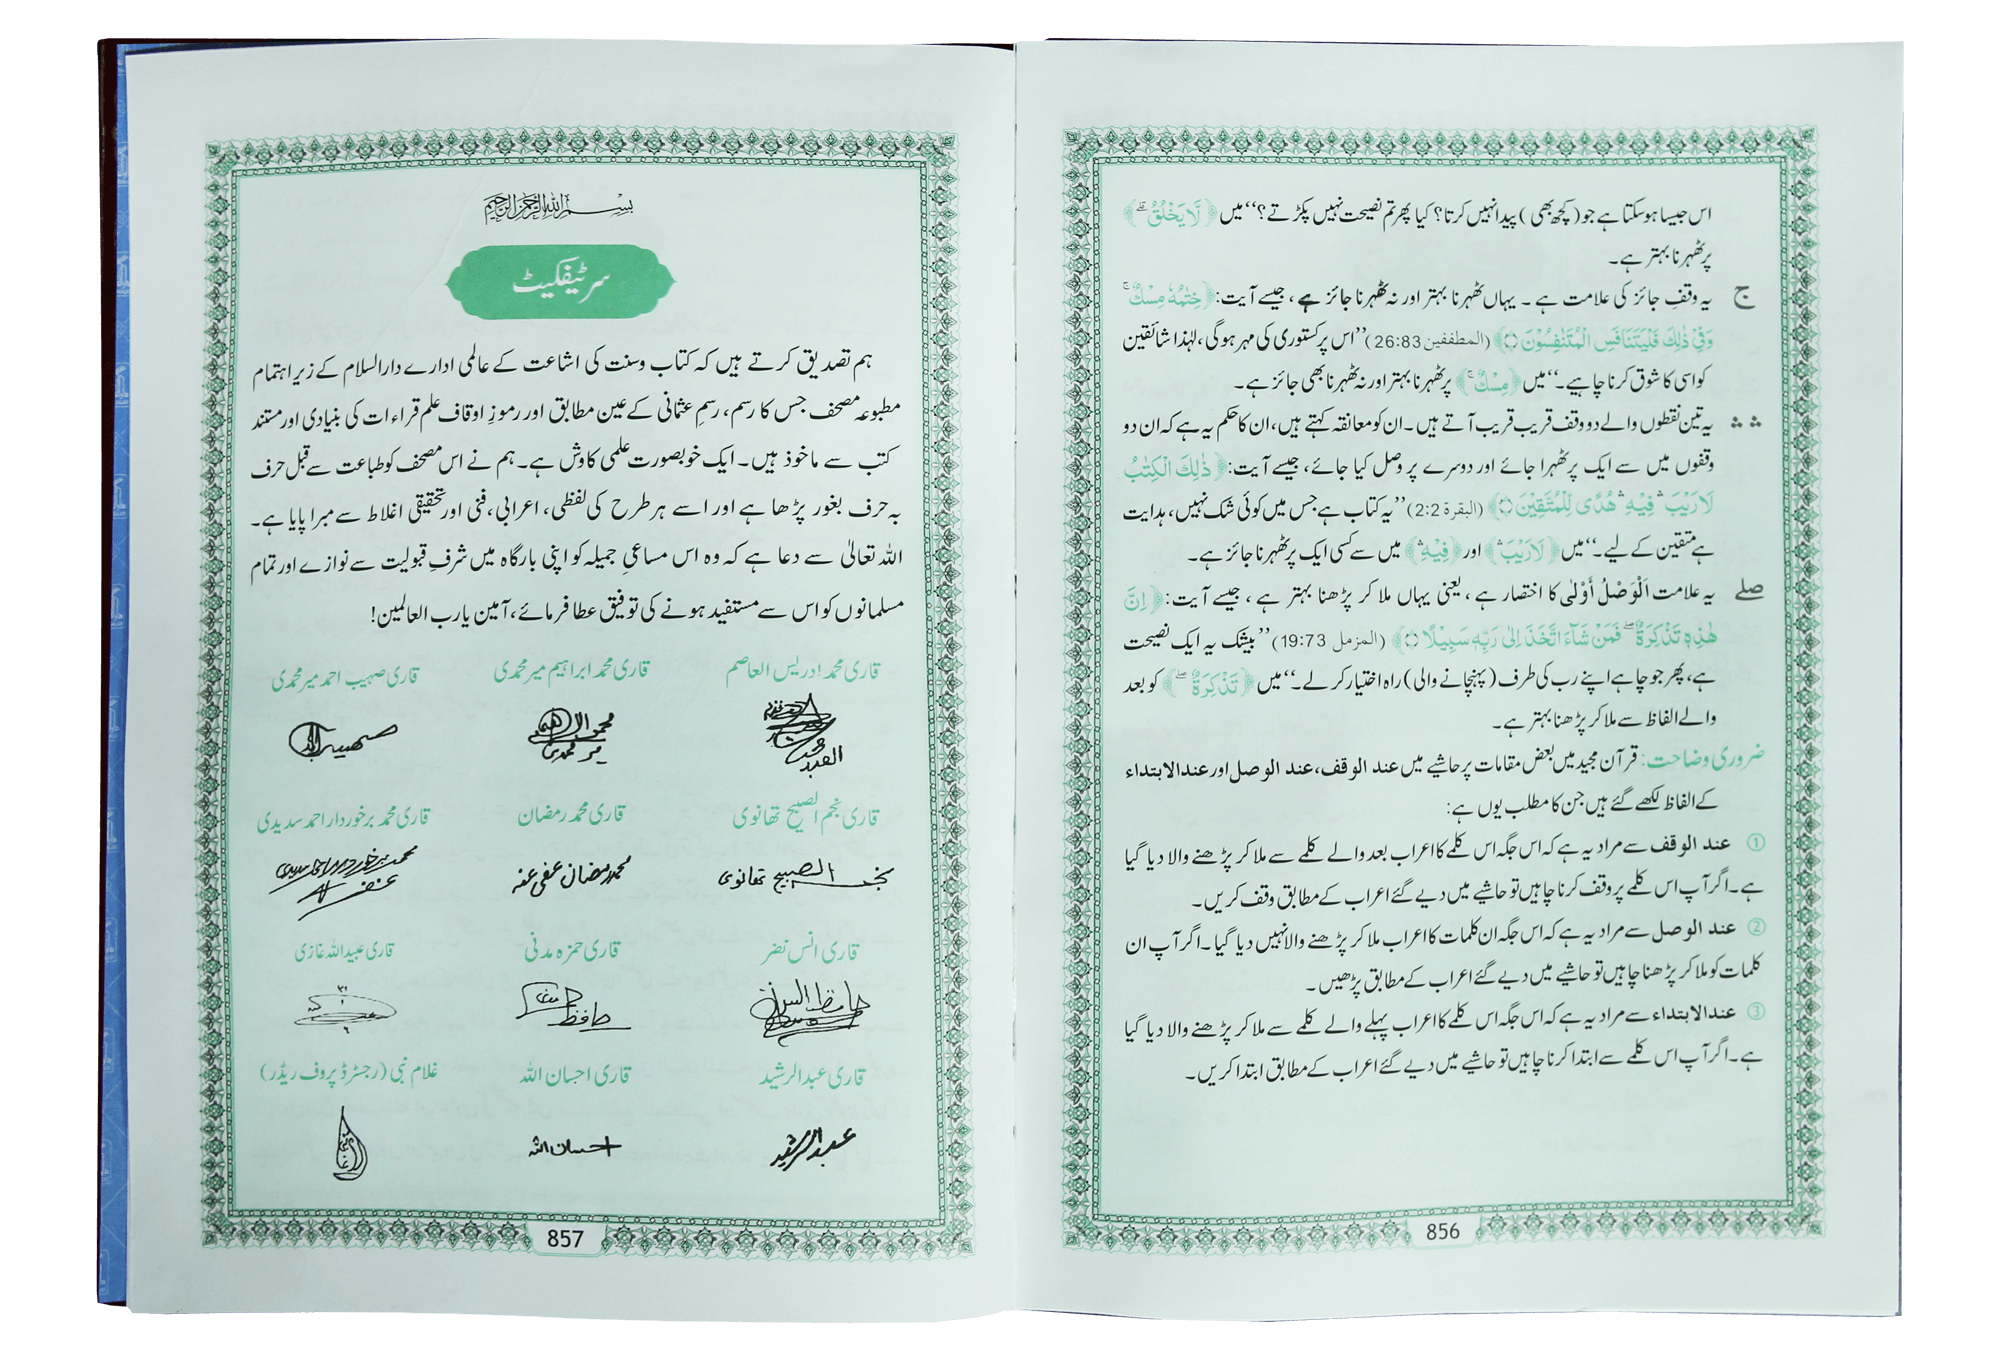 اس جیسا ہو سکتا ہے جو (کچھ بھی) پیدا نہیں کرتا؟ کیا پھر تم نصیحت نہیں پکڑتے؟‘‘ میں ﴿لَّا يَخْلُقُ ؕ﴾
پر ٹھہرنا بہتر ہے۔
ج یہ وقفِ جائز کی علامت ہے۔ یہاں ٹھہرنا بہتر اور نہ ٹھہرنا جائز ہے، جیسے آیت: ﴿خِتٰمُهٗ مِسْكٌ ۚ
وَفِیْ ذٰلِكَ فَلْیَتَنَافَسِ الْمُتَنٰفِسُوْنَ ۝﴾ (المطففین 26:83) ’’اس پر کستوری کی مہر ہوگی، لہٰذا شائقین
کو اسی کا شوق کرنا چاہیے۔‘‘ میں ﴿مِسْكٌ ۚ﴾ پر ٹھہرنا بہتر اور نہ ٹھہرنا بھی جائز ہے۔
ۛ ۛ یہ تین نقطوں والے دو وقف قریب قریب آتے ہیں۔ ان کو معانقہ کہتے ہیں، ان کا حکم یہ ہے کہ ان دو
وقفوں میں سے ایک پر ٹھہرا جائے اور دوسرے پر وصل کیا جائے، جیسے آیت: ﴿ذٰلِكَ الْكِتٰبُ
لَا رَیْبَ ۛ فِیْهِ ۛ هُدًی لِّلْمُتَّقِیْنَ ۝﴾ (البقرۃ 2:2) ’’یہ کتاب ہے جس میں کوئی شک نہیں، ہدایت
ہے متقین کے لیے۔‘‘ میں ﴿لَا رَیْبَ ۛ﴾ اور ﴿فِیْهِ ۛ﴾ میں سے کسی ایک پر ٹھہرنا جائز ہے۔
صلے یہ علامت اَلْوَصْلُ أَوْلٰی کا اختصار ہے، یعنی یہاں ملا کر پڑھنا بہتر ہے، جیسے آیت: ﴿اِنَّ
هٰذِهٖ تَذْكِرَةٌ ۖ فَمَنْ شَآءَ اتَّخَذَ اِلٰی رَبِّهٖ سَبِیْلًا ۝﴾ (المزمل 19:73) ’’بیشک یہ ایک نصیحت
ہے، پھر جو چاہے اپنے رب کی طرف (پہنچانے والی) راہ اختیار کر لے۔‘‘ میں ﴿تَذْكِرَةٌ ۖ﴾ کو بعد
والے الفاظ سے ملا کر پڑھنا بہتر ہے۔
ضروری وضاحت: قرآن مجید میں بعض مقامات پر حاشیے میں عند الوقف، عند الوصل اور عند الابتداء
کے الفاظ لکھے گئے ہیں جن کا مطلب یوں ہے:
① عند الوقف سے مراد یہ ہے کہ اس جگہ اس کلمے کا اعراب بعد والے کلمے سے ملا کر پڑھنے والا دیا گیا
ہے۔ اگر آپ اس کلمے پر وقف کرنا چاہیں تو حاشیے میں دیے گئے اعراب کے مطابق وقف کریں۔
② عند الوصل سے مراد یہ ہے کہ اس جگہ ان کلمات کا اعراب ملا کر پڑھنے والا نہیں دیا گیا۔ اگر آپ ان
کلمات کو ملا کر پڑھنا چاہیں تو حاشیے میں دیے گئے اعراب کے مطابق پڑھیں۔
③ عند الابتداء سے مراد یہ ہے کہ اس جگہ اس کلمے کا اعراب پہلے والے کلمے سے ملا کر پڑھنے والا دیا گیا
ہے۔ اگر آپ اس کلمے سے ابتدا کرنا چاہیں تو حاشیے میں دیے گئے اعراب کے مطابق ابتدا کریں۔
856
بسم اللہ الرحمن الرحیم
سرٹیفکیٹ
ہم تصدیق کرتے ہیں کہ کتاب وسنت کی اشاعت کے عالمی ادارے دارالسلام کے زیر اہتمام
مطبوعہ مصحف جس کا رسم، رسمِ عثمانی کے عین مطابق اور رموزِ اوقاف علم قراءات کی بنیادی اور مستند
کتب سے ماخوذ ہیں۔ ایک خوبصورت علمی کاوش ہے۔ ہم نے اس مصحف کو طباعت سے قبل حرف
بہ حرف بغور پڑھا ہے اور اسے ہر طرح کی لفظی، اعرابی، فنی اور تحقیقی اغلاط سے مبرا پایا ہے۔
اللہ تعالیٰ سے دعا ہے کہ وہ اس مساعیِ جمیلہ کو اپنی بارگاہ میں شرفِ قبولیت سے نوازے اور تمام
مسلمانوں کو اس سے مستفید ہونے کی توفیق عطا فرمائے، آمین یارب العالمین!
قاری محمد ادریس العاصم قاری محمد ابراہیم میرمحمدی قاری صہیب احمد میرمحمدی
محمد ابراہیم
میر محمدی
قاری نجم الصبیح تھانوی قاری محمد رمضان قاری محمد برخوردار احمد سدیدی
نجم الصبیح تھانوی محمد رمضان عفی عنہ محمد برخوردار احمد سدیدی
قاری انس نضر قاری حمزہ مدنی قاری عبیداللہ غازی
قاری عبدالرشید قاری احسان اللہ غلام نبی (رجسٹرڈ پروف ریڈر)
عبدالرشید احسان اللہ
857